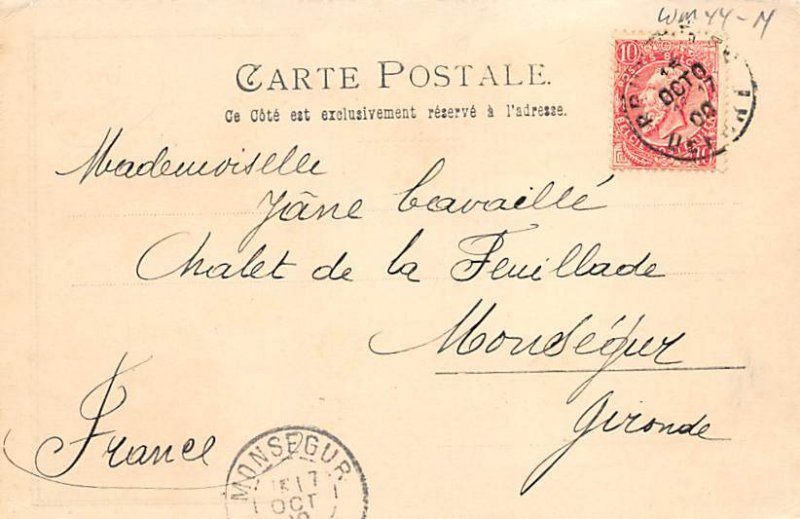 WM44-M
CARTE POSTALE.
Ce Côté est exclusivement réservé à l'adresse.
10
OCTO
00
Mademoiselle
Jâne Cavaillé
Chalet de la Feuillade
Monségur
Gironde
France
MONSEGUR
17
OCT